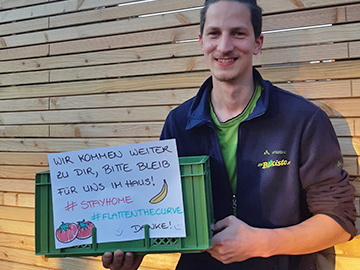 WIR KOMMEN WEITER
ZU DIR, BITTE BLEIB
FÜR UNS IM HAUS!
#STAYHOME
#FLATTENTHECURVE
DANKE!